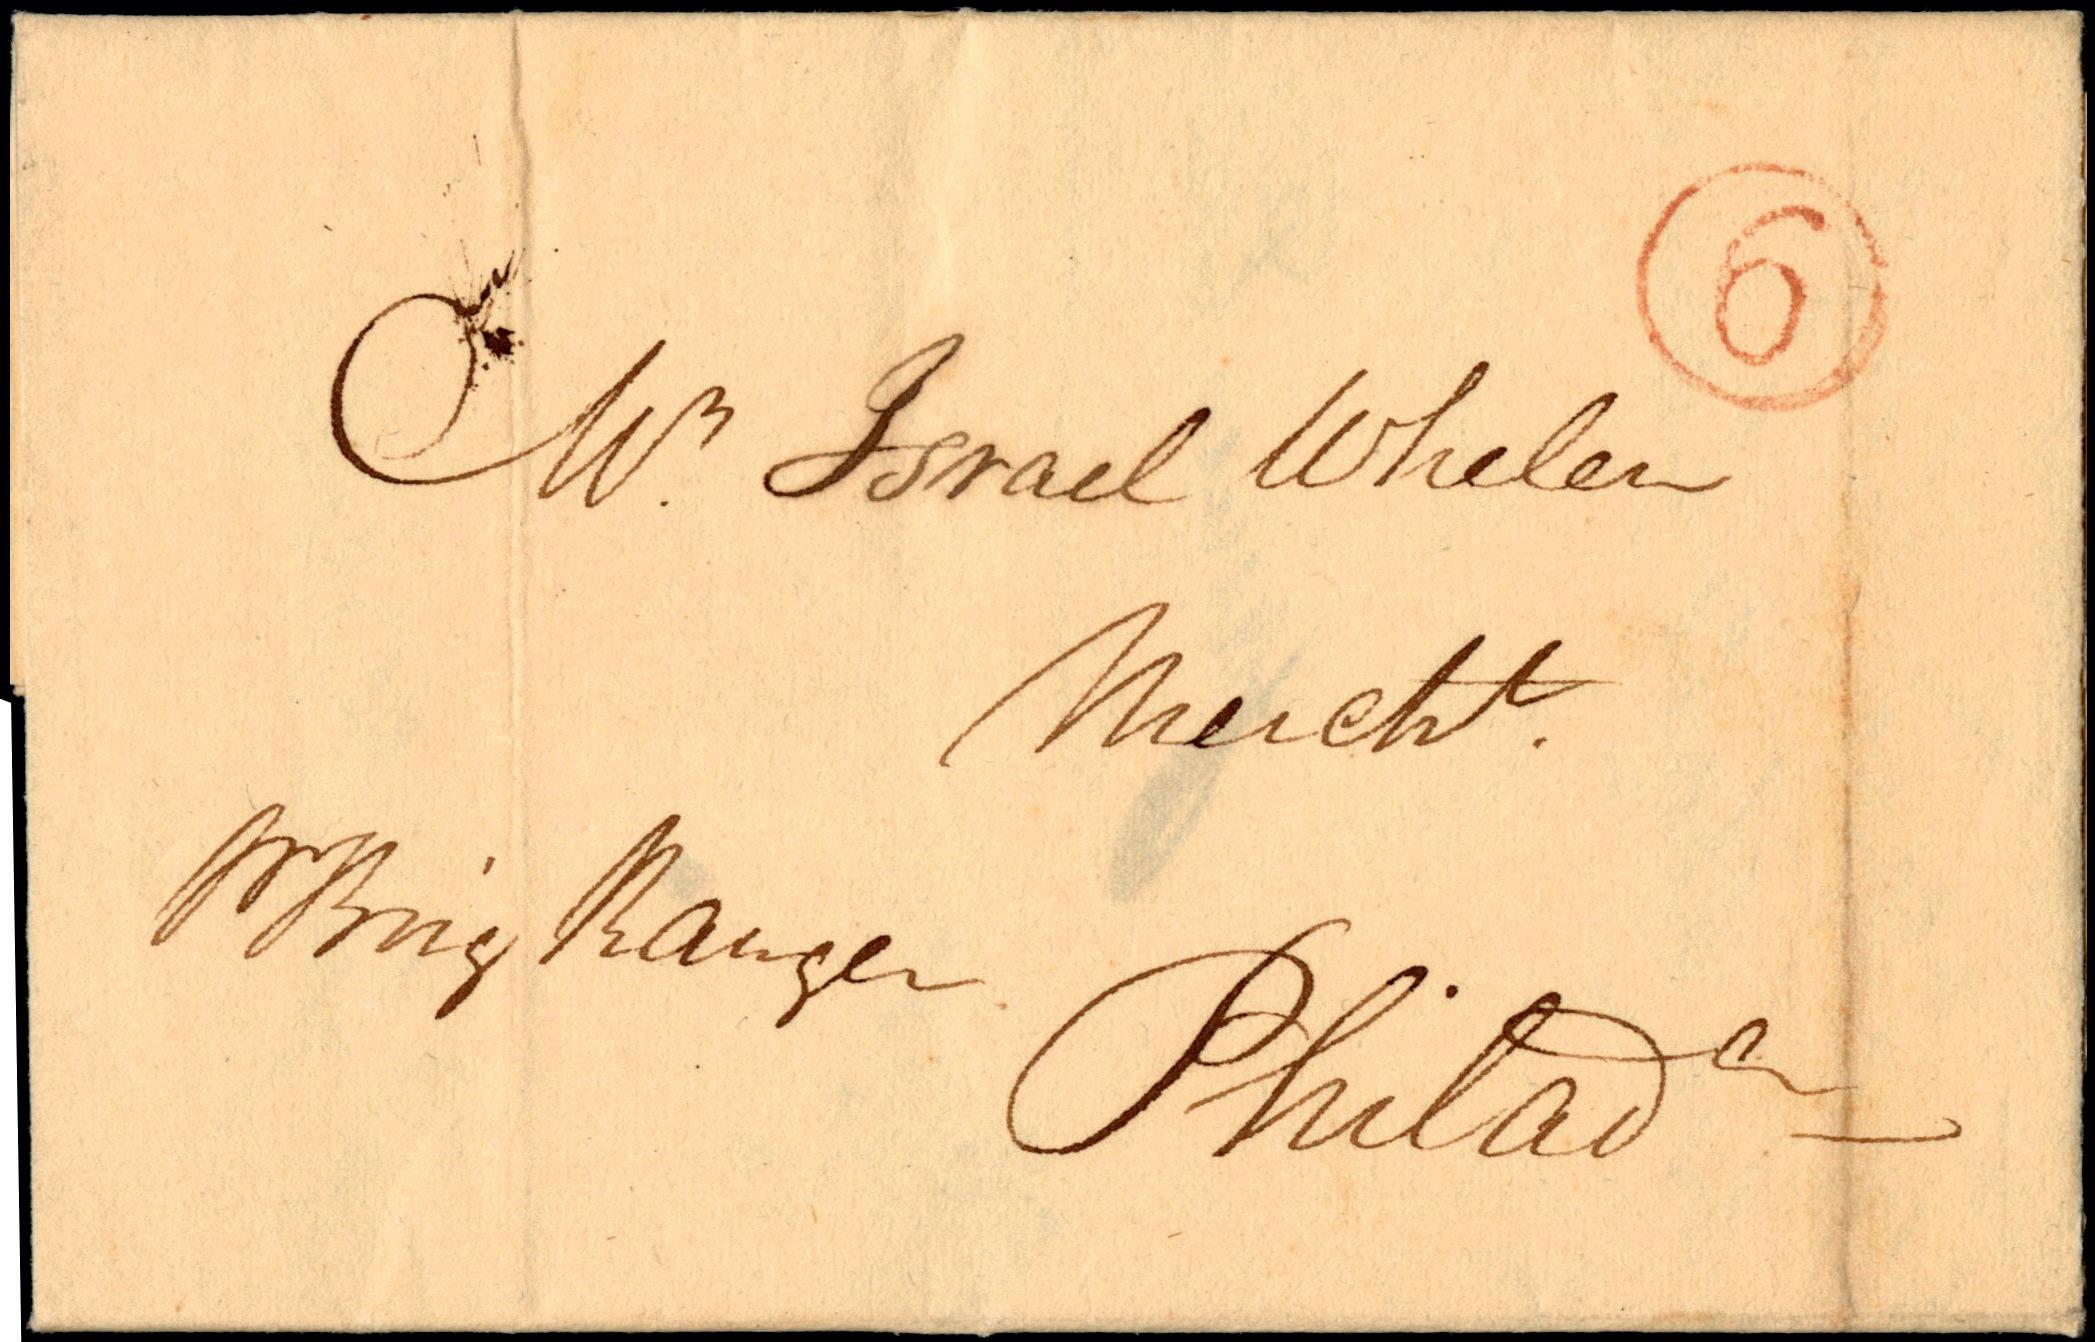 6
Mr. Israel Whelen
Mercht.
Pr Brig Ranger
Philada